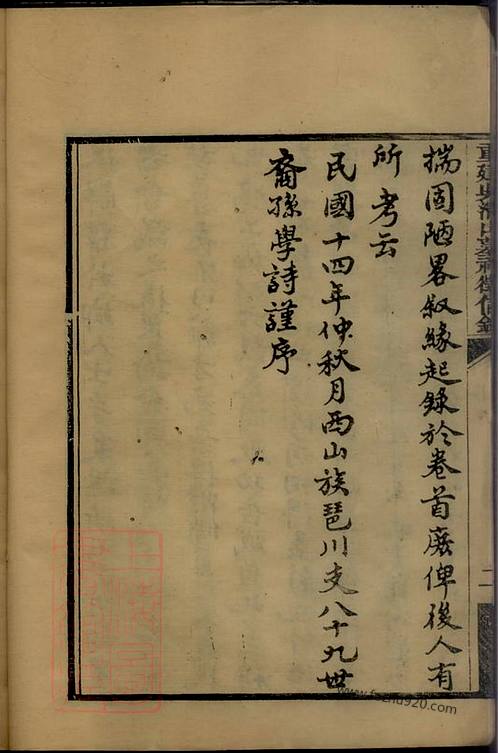 揣固陋畧叙緣起錄於卷首庶俾後人有
所考云
民國十四年仲秋月西山族琶川支八十九世
裔孫學詩謹序
二
www.fozhu920.com